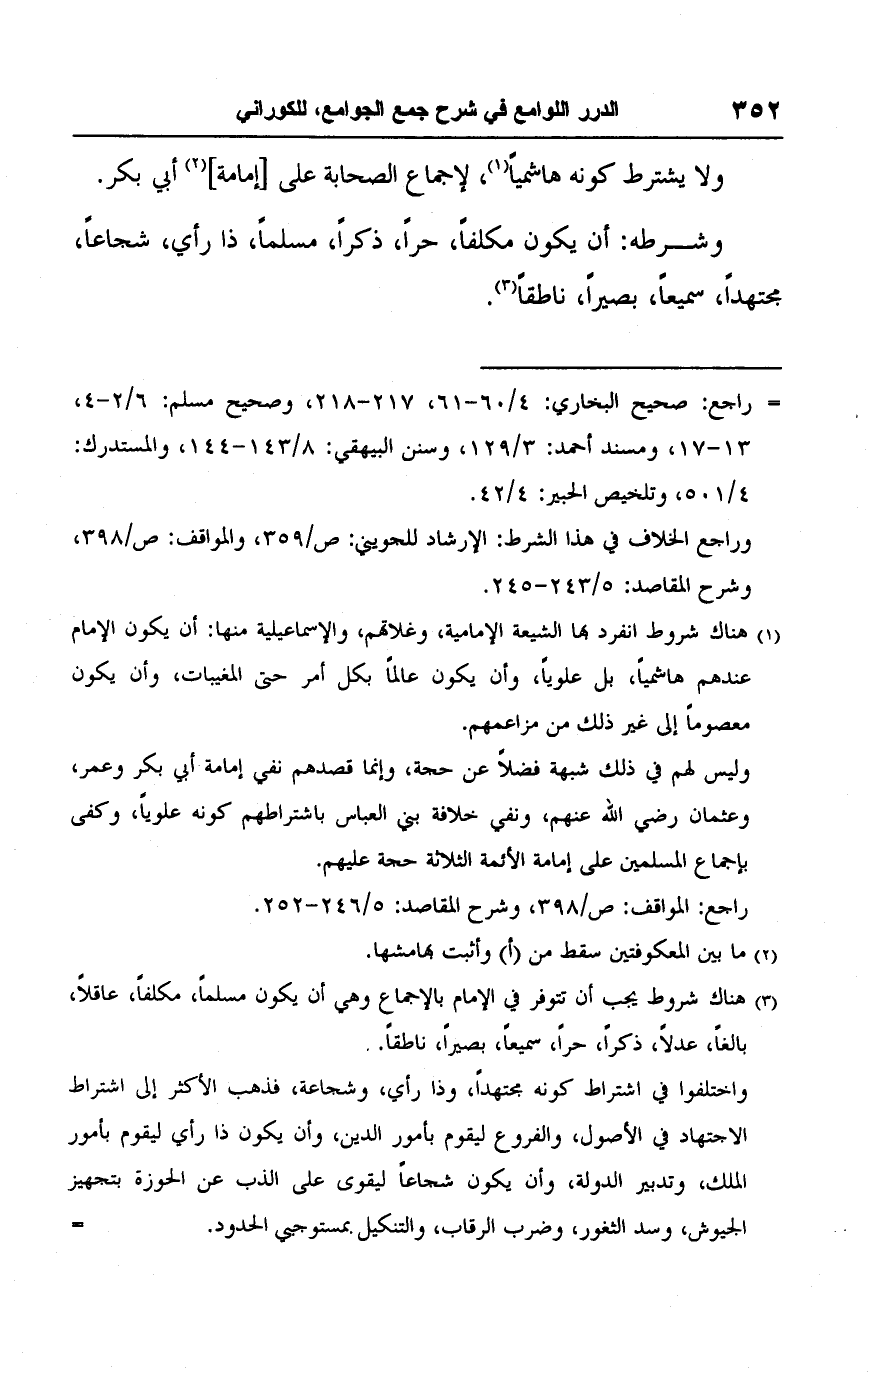 ٣٥٢ الدرر اللوامع في شرح جمع الجوامع، للكوراني
ولا يشترط كونه هاشمياً(١)، لإجماع الصحابة على [إمامة](٢) أبي بكر.
وشـــرطه: أن يكون مكلفاً، حراً، ذكراً، مسلماً، ذا رأي، شجاعاً،
مجتهداً، سميعاً، بصيراً، ناطقاً(٣).
= راجع: صحيح البخاري: ٤/ ٦٠-٦١، ٢١٧-٢١٨، وصحيح مسلم: ٦/ ٢-٤،
١٣-١٧، ومسند أحمد: ٣/ ١٢٩، وسنن البيهقي: ٨/ ١٤٣-١٤٤، والمستدرك:
٤/ ٥٠١، وتلخيص الحبير: ٤/ ٤٢.
وراجع الخلاف في هذا الشرط: الإرشاد للجويني: ص/٣٥٩، والمواقف: ص/٣٩٨،
وشرح المقاصد: ٥/ ٢٤٣-٢٤٥.
(١) هناك شروط انفرد بها الشيعة الإمامية، وغلاتهم، والإسماعيلية منها: أن يكون الإمام
عندهم هاشمياً، بل علوياً، وأن يكون عالماً بكل أمر حتى المغيبات، وأن يكون
معصوماً إلى غير ذلك من مزاعمهم.
وليس لهم في ذلك شبهة فضلاً عن حجة، وإنما قصدهم نفي إمامة أبي بكر وعمر،
وعثمان رضي الله عنهم، ونفي خلافة بني العباس باشتراطهم كونه علوياً، وكفى
بإجماع المسلمين على إمامة الأئمة الثلاثة حجة عليهم.
راجع: المواقف: ص/٣٩٨، وشرح المقاصد: ٥/ ٢٤٦-٢٥٢.
(٢) ما بين المعكوفتين سقط من (أ) وأثبت بهامشها.
(٣) هناك شروط يجب أن تتوفر في الإمام بالإجماع وهي أن يكون مسلماً، مكلفاً، عاقلاً،
بالغاً، عدلاً، ذكراً، حراً، سميعاً، بصيراً، ناطقاً.
واختلفوا في اشتراط كونه مجتهداً، وذا رأي، وشجاعة، فذهب الأكثر إلى اشتراط
الاجتهاد في الأصول، والفروع ليقوم بأمور الدين، وأن يكون ذا رأي ليقوم بأمور
الملك، وتدبير الدولة، وأن يكون شجاعاً ليقوى على الذب عن الحوزة بتجهيز
الجيوش، وسد الثغور، وضرب الرقاب، والتنكيل بمستوجبي الحدود. =